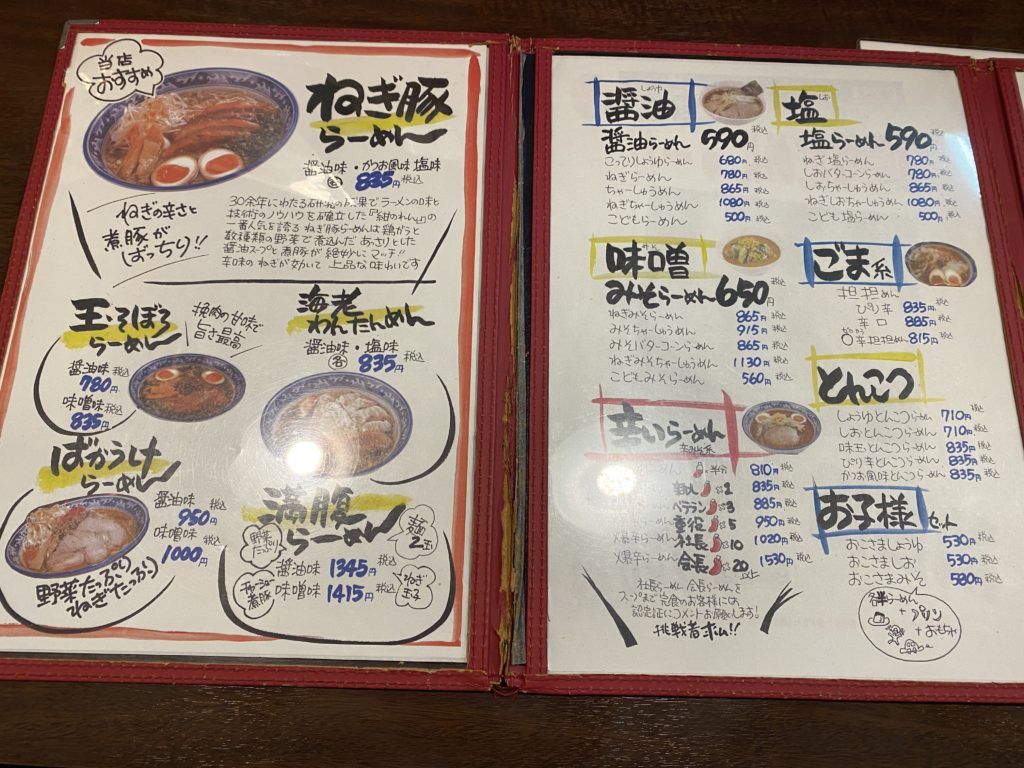 当店
おすすめ
ねぎ豚
らーめん
醤油味・かつお風味塩味
各 835円 税込
ねぎの辛さと
煮豚が
ばっちり!!
30余年にわたる研究の成果でラーメンの味と
技術のノウハウを確立した『紺のれん』の
一番人気を誇る ねぎ豚らーめんは鶏がらと
数種類の野菜で煮込んだ あっさりとした
醤油スープと煮豚が 絶妙にマッチ!!
辛味の ねぎが効いて 上品な味わいです
玉・そぼろ
らーめん
挽肉の甘味で
旨さ最高
醤油味 税込
780円
味噌味 税込
835円
海老
わんたんめん
醤油味・塩味
各 835円 税込
ばかうけ
らーめん
醤油味 税込
950円
味噌味 税込
1000円
野菜たっぷり
ねぎたっぷり
満腹
らーめん
野菜
たっぷり
麺
2玉
チャーシュー
煮豚
ねぎ
玉子
醤油味 1345円 税込
味噌味 1415円 税込
醤油
しょうゆ
醤油らーめん 590円 税込
こってりしょうゆらーめん 680円 税込
ねぎらーめん 780円 税込
ちゃーしゅうめん 865円 税込
ねぎちゃーしゅうめん 1080円 税込
こどもらーめん 500円 税込
塩
しお
塩らーめん 590円 税込
ねぎ塩らーめん 780円 税込
しおバターコーンらーめん 780円 税込
しおちゃーしゅうめん 865円 税込
ねぎしおちゃーしゅうめん 1080円 税込
こども塩らーめん 500円 税込
味噌
みそ
みそらーめん 650円 税込
ねぎみそらーめん 865円 税込
みそちゃーしゅうめん 915円 税込
みそバターコーンらーめん 865円 税込
ねぎみそちゃーしゅうめん 1130円 税込
こどもみそらーめん 560円 税込
ごま系
担担めん
ぴり辛 835円 税込
辛口 885円 税込
辛担担めん 815円 税込
とんこつ
しょうゆとんこつらーめん 710円 税込
しおとんこつらーめん 710円 税込
味玉とんこつらーめん 835円 税込
ぴり辛とんこつらーめん 835円 税込
かつお風味とんこつらーめん 835円 税込
辛いらーめん
半分 810円 税込
2 835円 税込
ベテラン 3 885円 税込
重役 5 950円 税込
爆辛らーめん 社長 10 1020円 税込
爆辛らーめん 会長 20以上 1530円 税込
社長らーめん 会長らーめんを
スープまで完食のお客様には
認定証にコメントお願いします!
挑戦者求ム!!
お子様セット
おこさましょうゆ 530円 税込
おこさましお 530円 税込
おこさまみそ 580円 税込
らーめん
+プリン
+おもちゃ